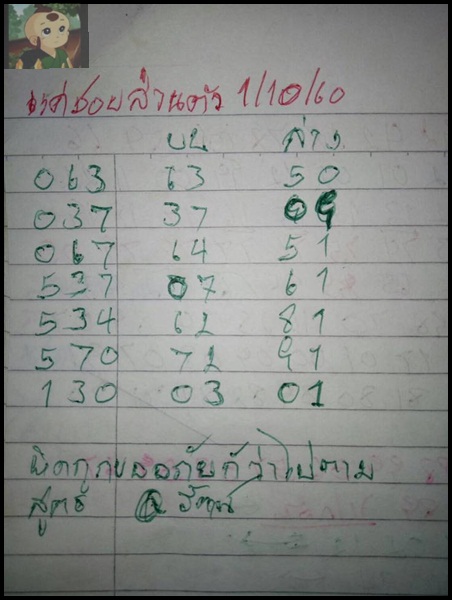 ส่วนตัว 1/10/60
บน ล่าง
063 63 50
037 37 09
067 64 51
537 07 61
534 62 81
570 72 91
130 03 01
ผิดถูกขออภัยก็ว่าไปตาม
สูตร